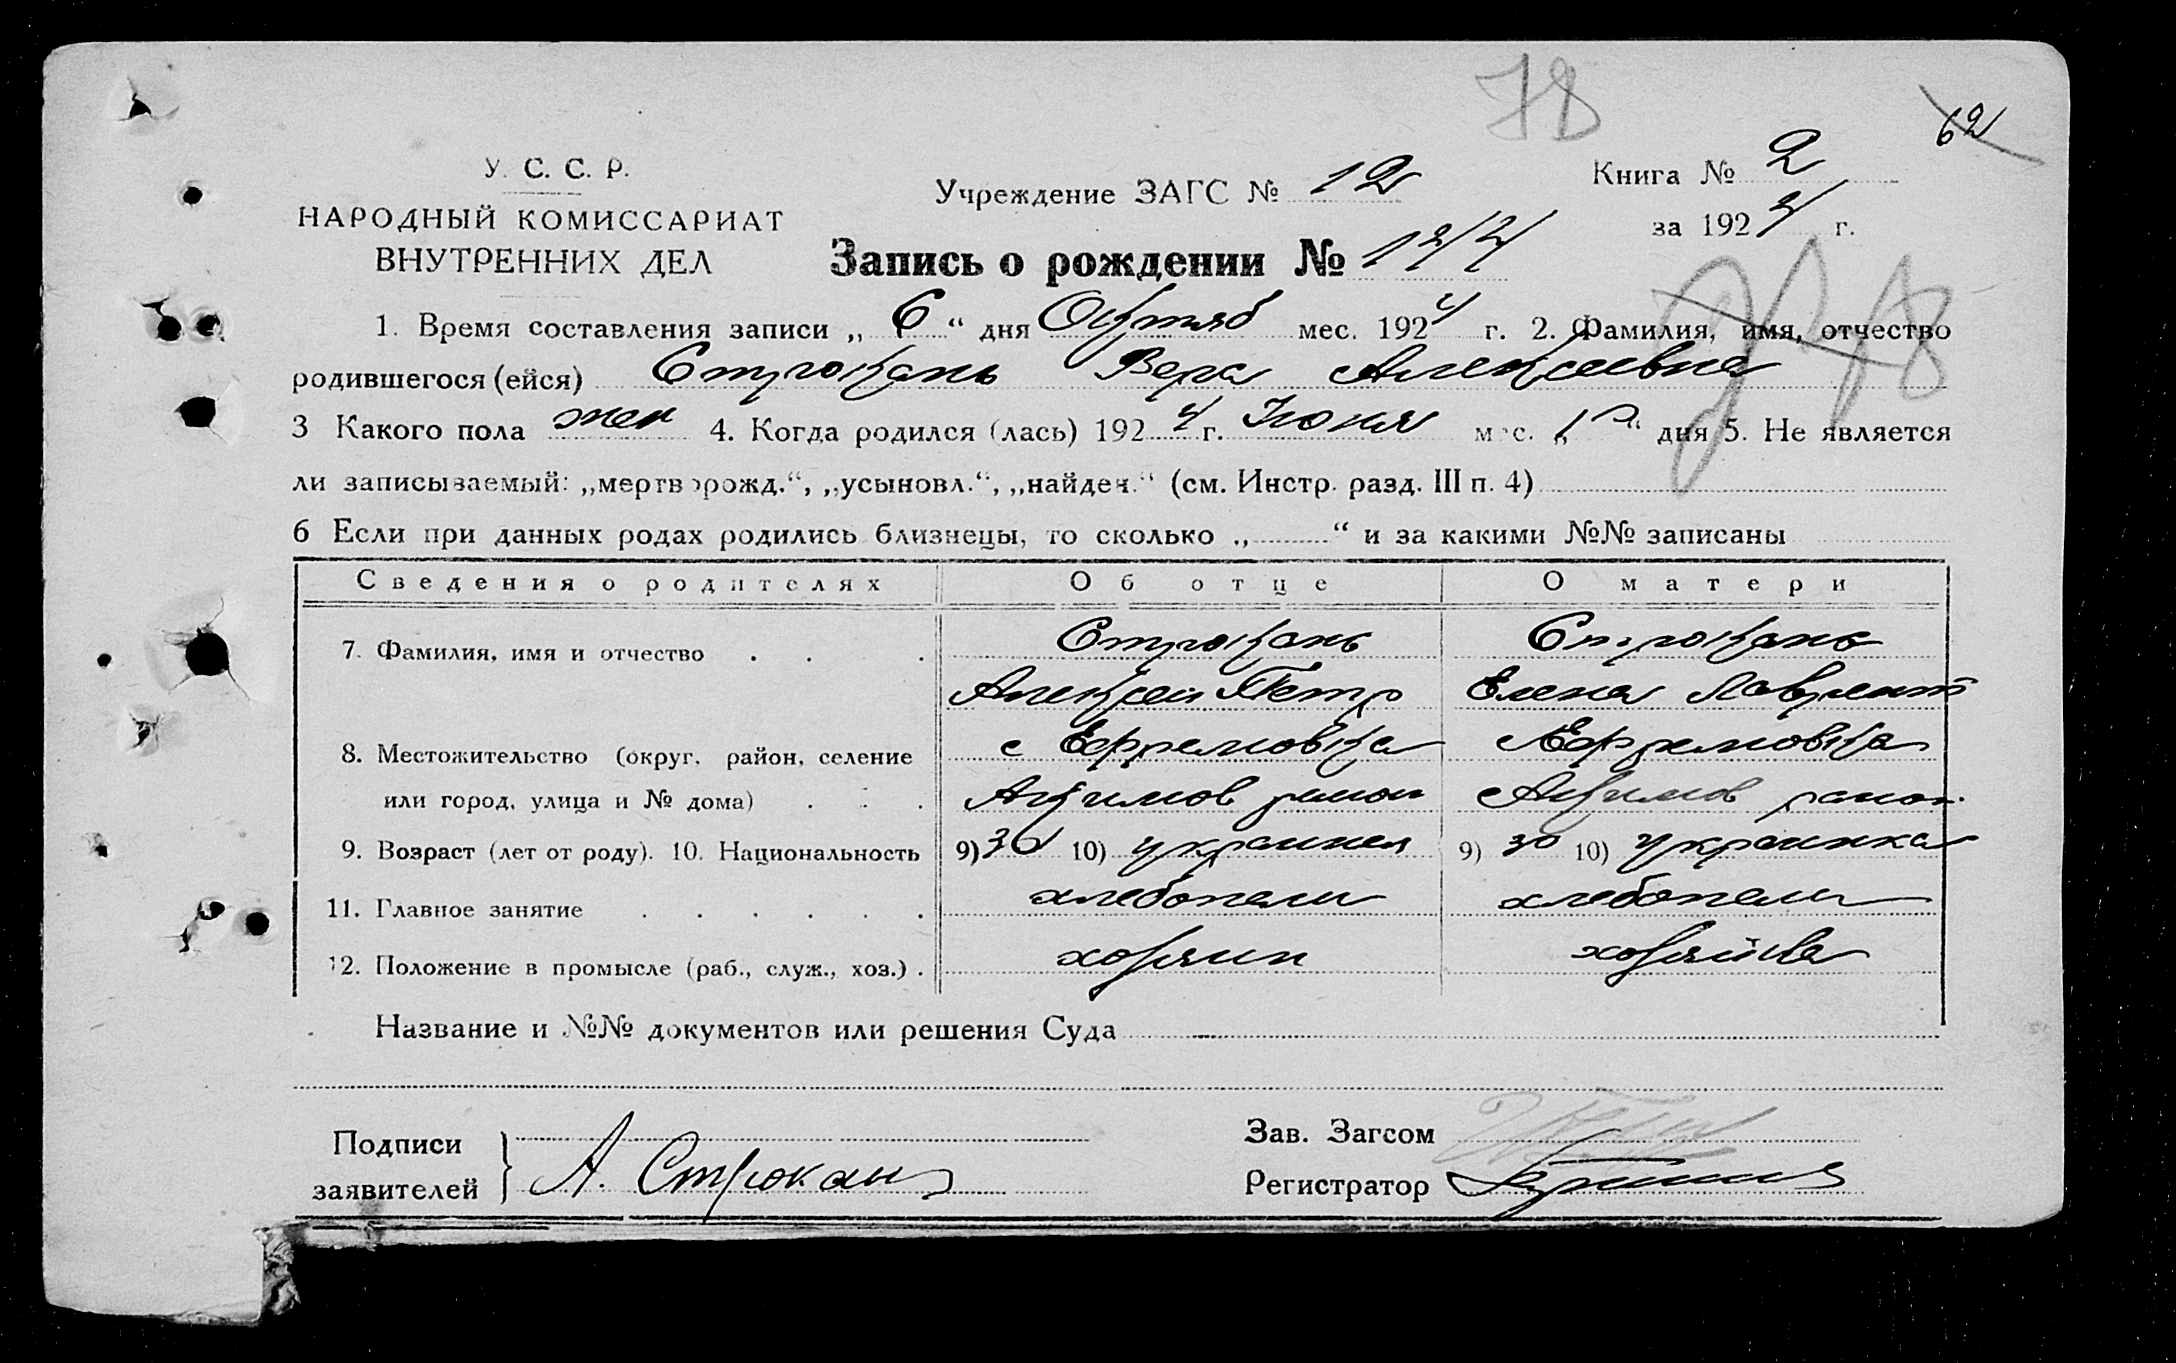 78
62
У. С. С. Р.
НАРОДНЫЙ КОМИССАРИАТ
ВНУТРЕННИХ ДЕЛ
Учреждение ЗАГС № 12
Книга № 2
за 1924 г.
Запись о рождении № 144
1. Время составления записи „ 6 “ дня Октяб мес. 1924 г. 2. Фамилия, имя, отчество
родившегося (ейся) Строкань Вера Алексеевна
3 Какого пола жен 4. Когда родился (лась) 1924 г. Июня мес. „ “ дня 5. Не является
ли записываемый: „мертворожд.“, „усыновл.“, „найден.“ (см. Инстр. разд. III п. 4)
6 Если при данных родах родились близнецы, то сколько „ “ и за какими №№ записаны
Сведения о родителях Об отце О матери
7. Фамилия, имя и отчество Строкань Строкань
Алексей Петр Елена Лаврент
8. Местожительство (округ, район, селение с Ефремовка с Ефремовка
или город, улица и № дома) Акимов район Акимов район
9. Возраст (лет от роду). 10. Национальность 9) 30 10) украинец 9) 30 10) украинка
11. Главное занятие хлебопаш хлебопаш
12. Положение в промысле (раб., служ., хоз.) хозяин хозяйка
Название и №№ документов или решения Суда
Подписи
заявителей А. Строкань
Зав. Загсом
Регистратор